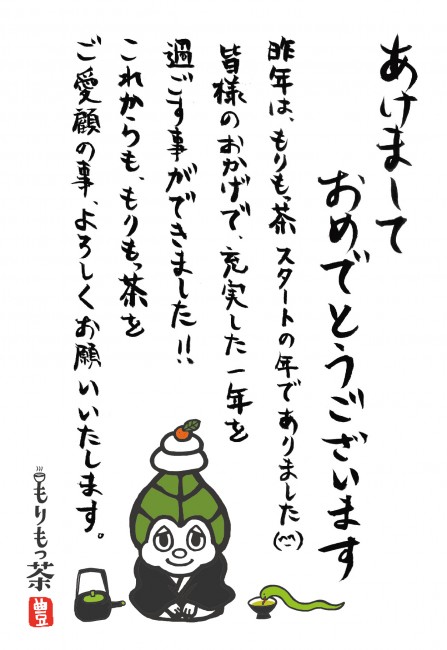 あけまして
おめでとうございます
昨年は、もりもっ茶 スタートの年でありました(^^)
皆様のおかげで、充実した一年を
過ごす事ができました!!
これからも、もりもっ茶を
ご愛顧の事、よろしくお願いいたします。
もりもっ茶
豊